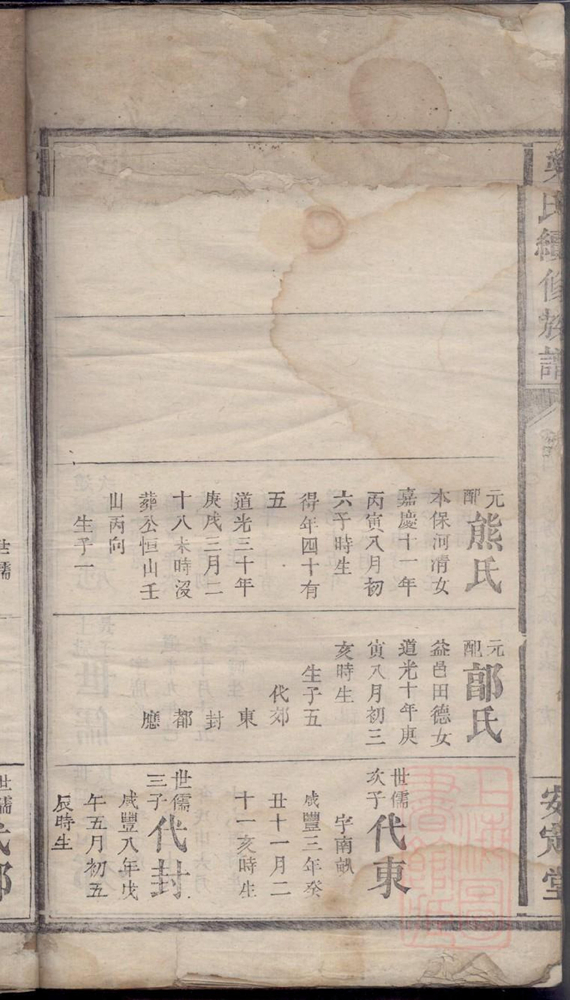 氏續修族譜
安定堂
元配熊氏
本保河清女
嘉慶十一年
丙寅八月初
六子時生
得年四十有
五
道光三十年
庚戌三月二
十八未時沒
葬公恒山壬
山丙向
生子一
元配部氏
益邑田德女
道光十年庚
寅八月初三
亥時生
生子五
代郊
東
封
都
應
世儒次子代東
字南畝
咸豐三年癸
丑十一月二
十一亥時生
世儒三子代封
咸豐八年戊
午五月初五
辰時生
世儒
世儒